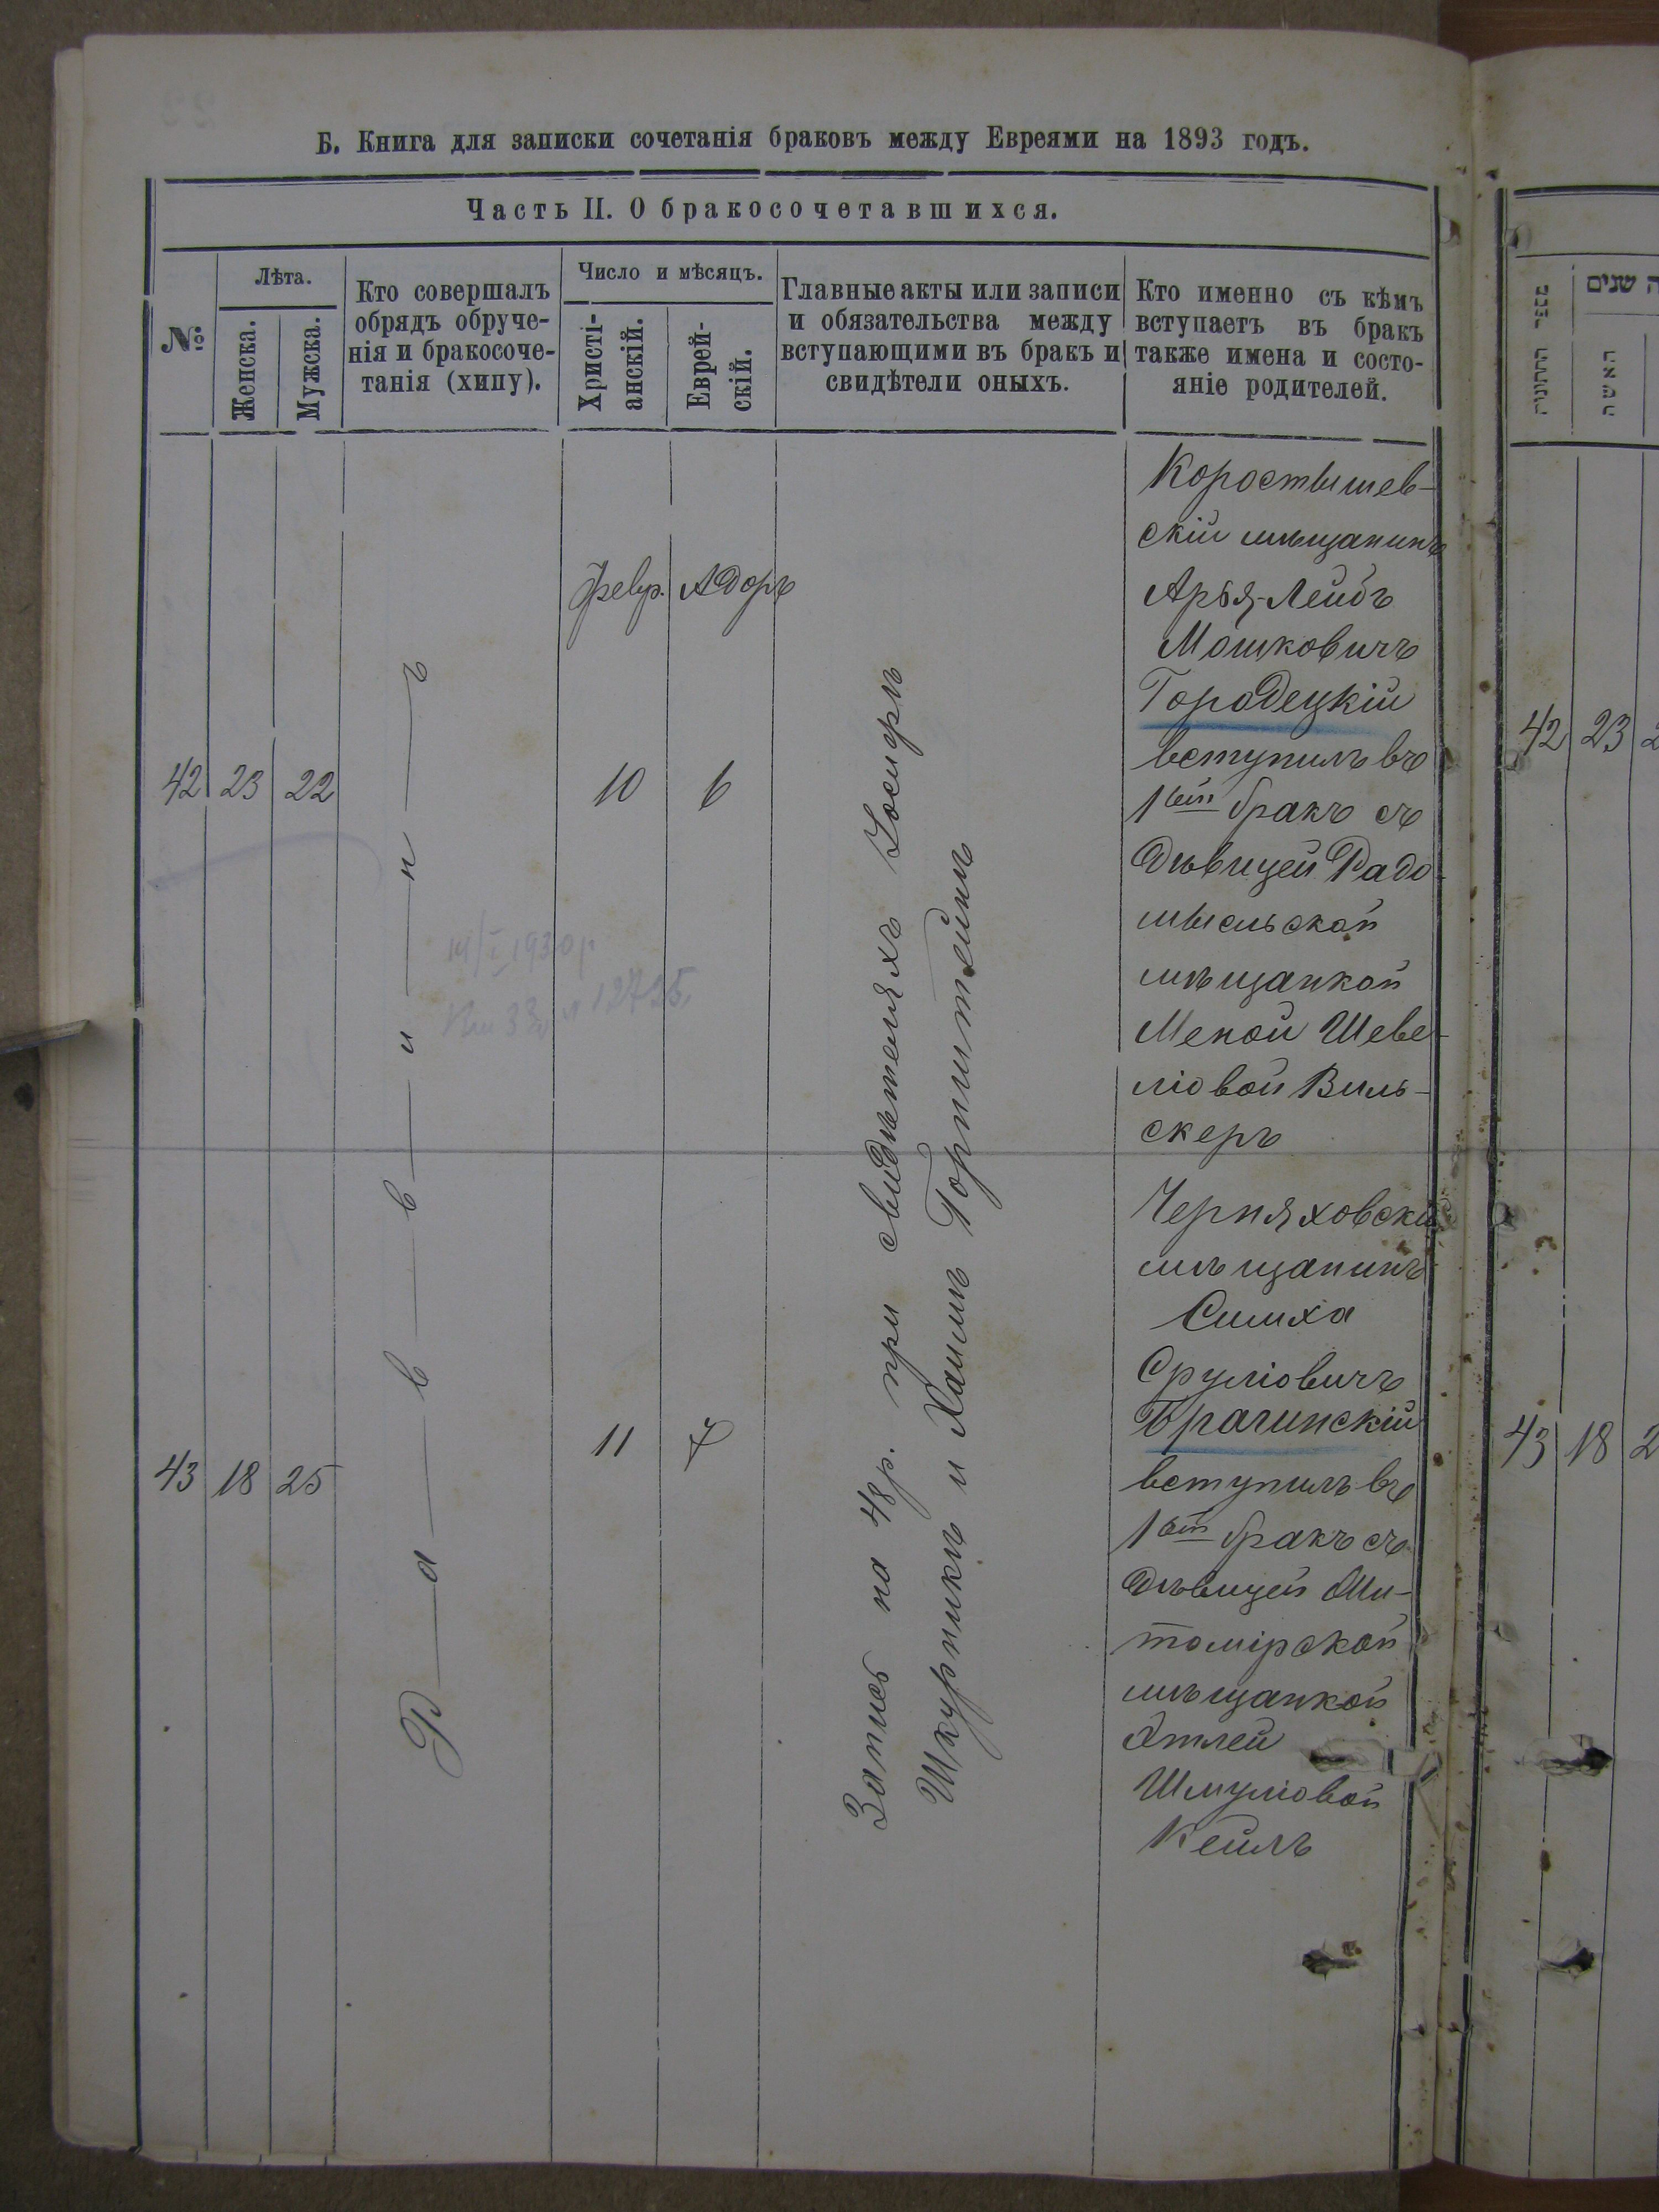 Б. Книга для записки сочетанія браковъ между Евреями на 1893 годъ.
Часть II. О бракосочетавшихся.
№
Лѣта.
Женска.
Мужска.
Кто совершалъ
обрядъ обруче-
нія и бракосоче-
танія (хипу).
Число и мѣсяцъ.
Христі-
анскій.
Еврей-
скій.
Главные акты или записи
и обязательства между
вступающими въ бракъ и
свидѣтели оныхъ.
Кто именно съ кѣмъ
вступаетъ въ бракъ
также имена и состо-
яніе родителей.
Февр. Адоръ
42 23 22
10 6
43 18 25
11 7
Р—а—в—в—и—н—ъ
Запись на 48 р. при свидѣтеляхъ Іосифъ
Шкурникъ и Хаимъ Горнштейнъ
Коростышев-
скій мѣщанинъ
Арья-Лейбъ
Мошковичъ
Городецкій
вступилъ въ
1ый бракъ съ
дѣвицей Радо-
мысльской
мѣщанкой
Меной Шеве-
ліовой Виль-
скеръ
Черняховскій
мѣщанинъ
Симха
Сруліовичъ
Брагинскій
вступилъ въ
1ый бракъ съ
дѣвицей Жи-
томірской
мѣщанкой
Этлей
Шмуліовой
Кейлъ
14/I 1930 р
ה שנים
האשה
42 23 2
43 18 2